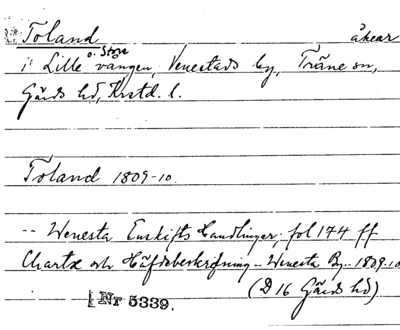 Toland åkrar
i Lille o. Stora vången, Venestads by, Träne sn,
Gärds hd, Krstd. l.
Toland 1809-10.
-- Wenesta Enskifts Handlingar, fol 174 ff
Charta och Häfdebeskrifning - Wenesta By - 1809-10
(D 16 Gärds hd)
Nr 5339.